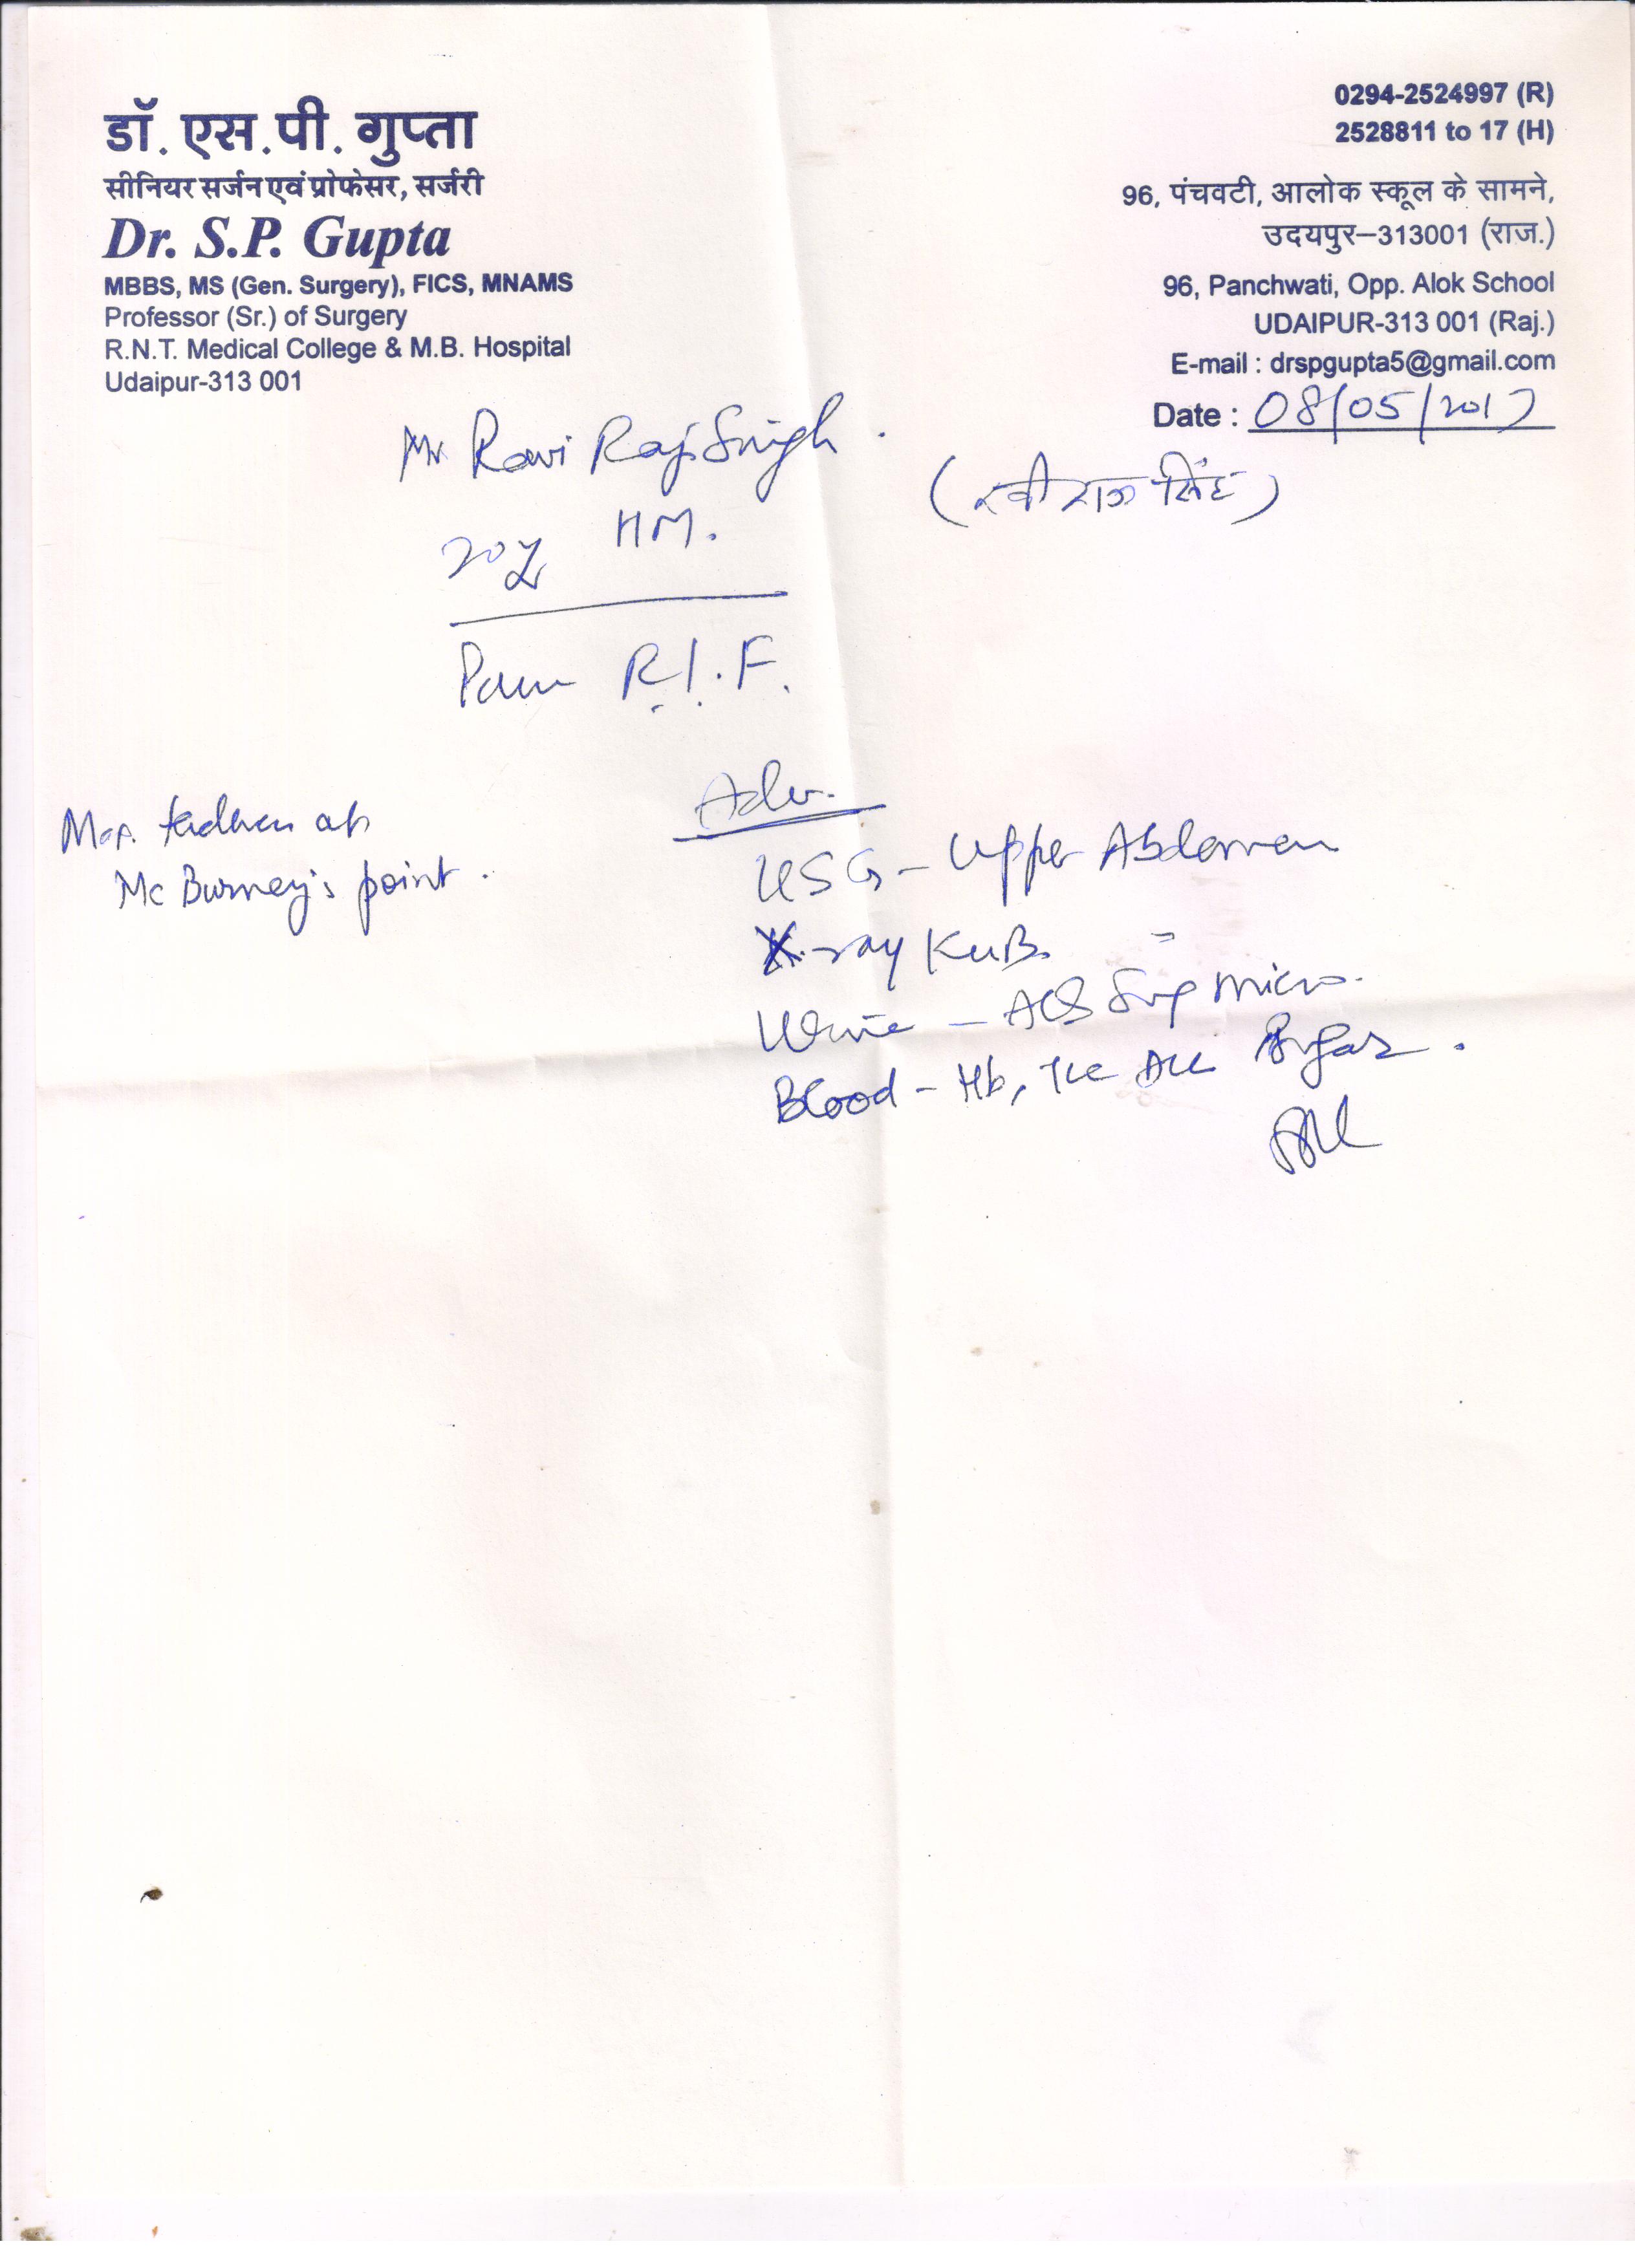 डॉ. एस.पी. गुप्ता
सीनियर सर्जन एवं प्रोफेसर, सर्जरी
Dr. S.P. Gupta
MBBS, MS (Gen. Surgery), FICS, MNAMS
Professor (Sr.) of Surgery
R.N.T. Medical College & M.B. Hospital
Udaipur-313 001
0294-2524997 (R)
2528811 to 17 (H)
96, पंचवटी, आलोक स्कूल के सामने,
उदयपुर–313001 (राज.)
96, Panchwati, Opp. Alok School
UDAIPUR-313 001 (Raj.)
E-mail : drspgupta5@gmail.com
Date : 08/05/2017
Mr Ravi Raj Singh.
(रवी राज सिंह)
20y HM.
Pain R.I.F.
Max. at
Mc Burney's point.
Adv.
USG - Upper Abdomen
X-ray KUB.
Urine - Sug Micro.
Blood - Hb, TLC DLC Sugar.